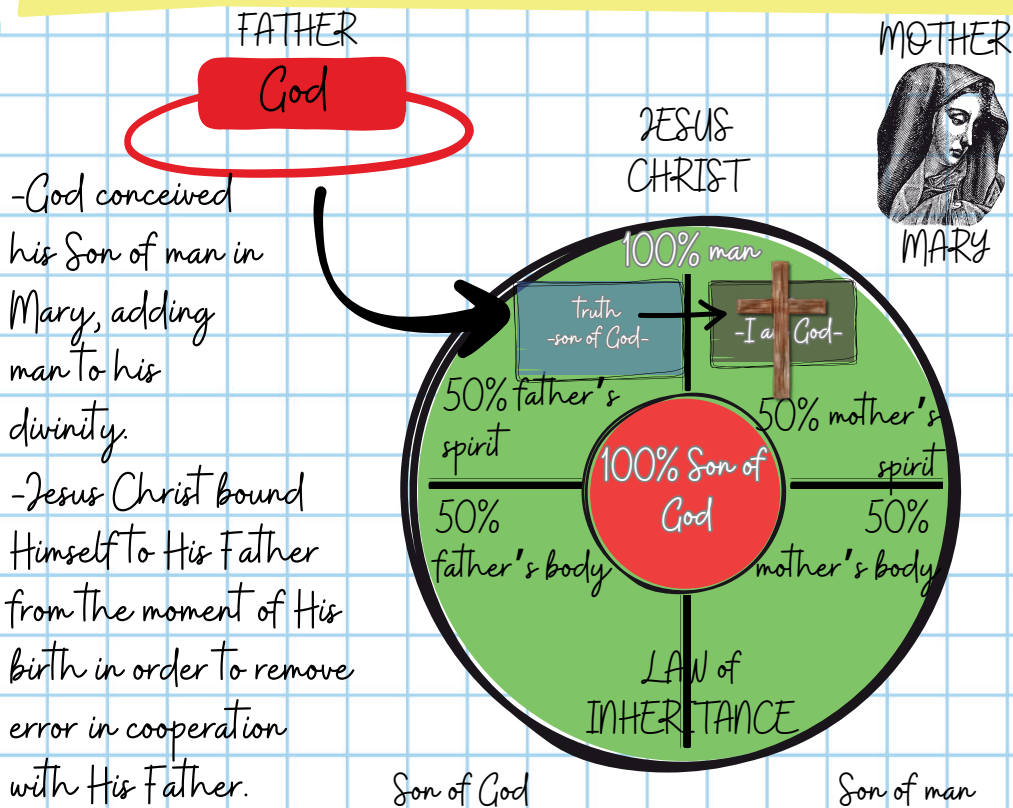 FATHER
God
MOTHER
MARY
JESUS
CHRIST
-God conceived
his Son of man in
Mary, adding
man to his
divinity.
-Jesus Christ bound
Himself to His Father
from the moment of His
birth in order to remove
error in cooperation
with His Father.
100% man
truth
-son of God-
-I am God-
50% father's
spirit
50% mother's
spirit
100% Son of
God
50%
father's body
50%
mother's body
LAW of
INHERITANCE
Son of God
Son of man